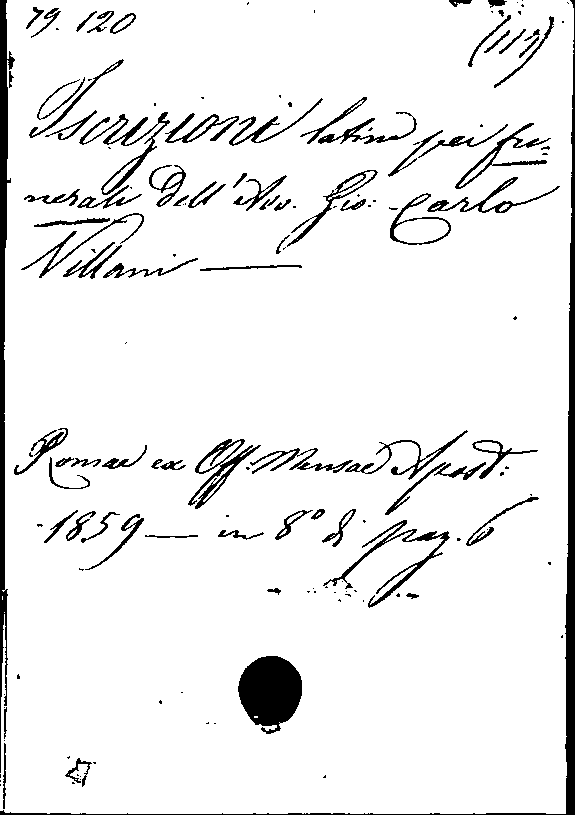 79. 120
(117)
Iscrizioni latine pei fu=
nerali dell'Avv. Gio: Carlo
Villani —
Romae ex Off. Mensae Apost:
1859 — in 8° di pag. 6